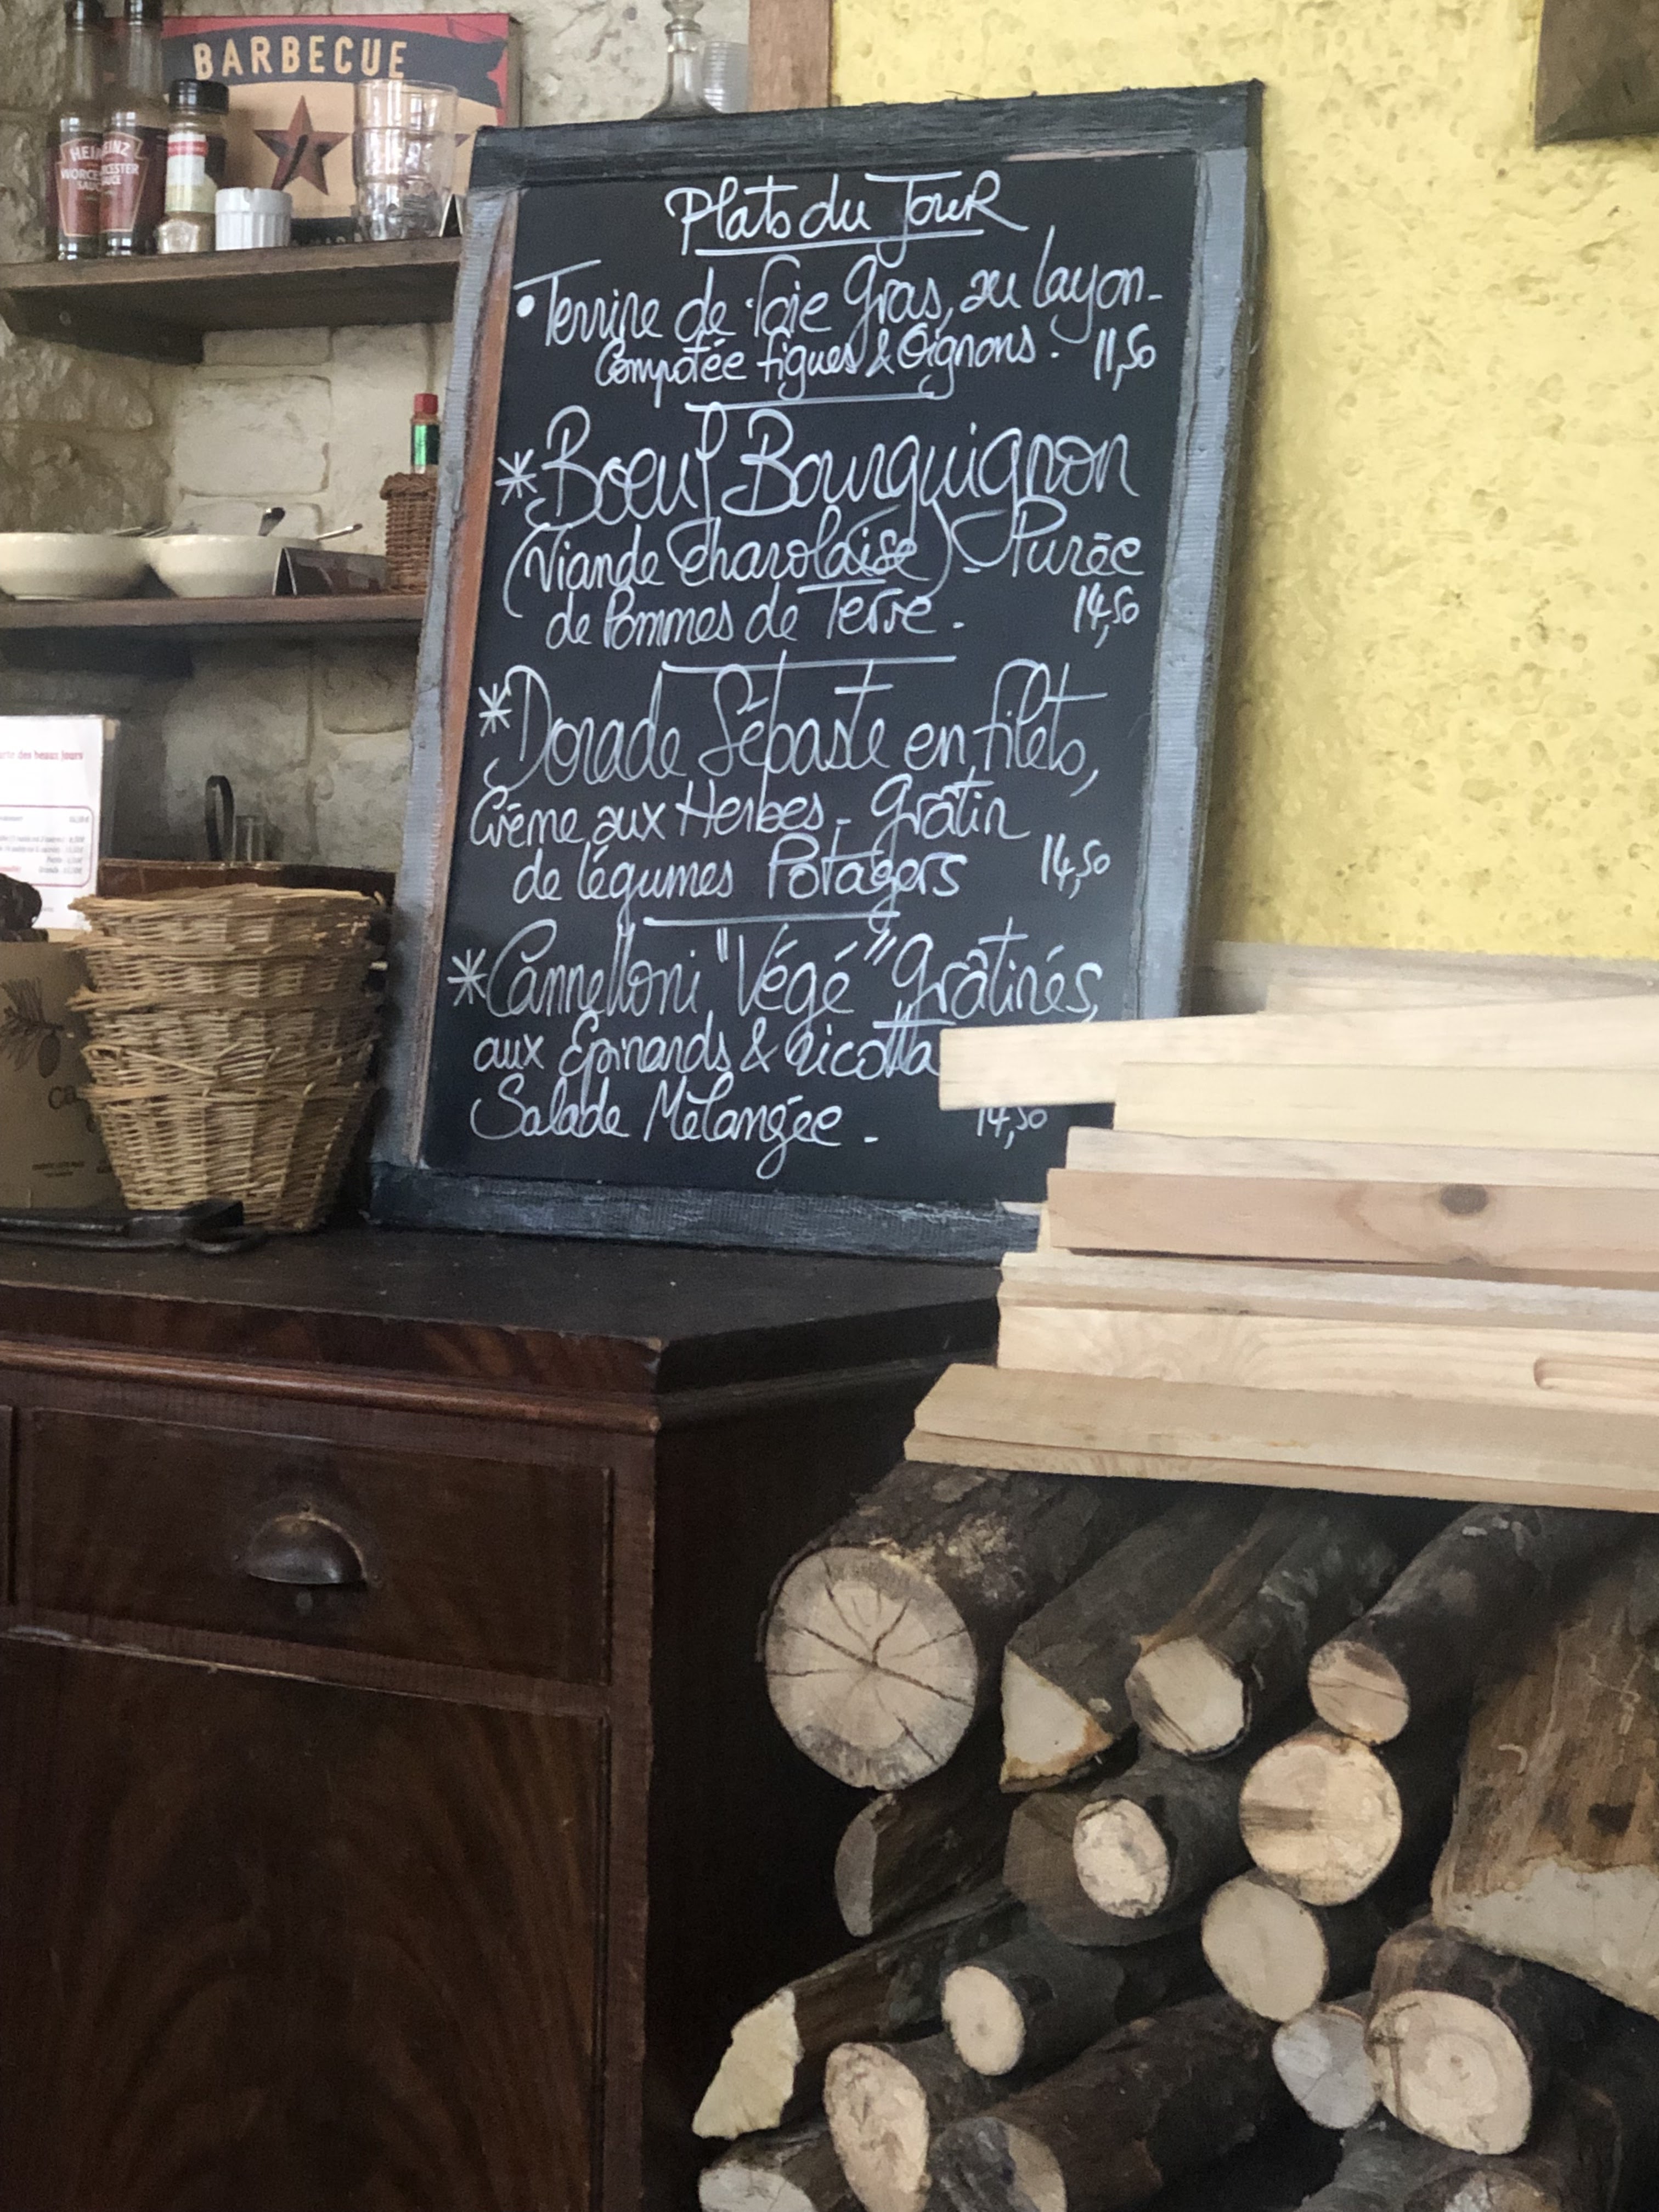 BARBECUE
HEINZ
WORCESTER
SAUCE
Plats du Jour
• Terrine de foie Gras, au layon -
Compotée figues & Oignons. 11,50
* Boeuf Bourguignon
(Viande Charolaise) - Purée
de Pommes de Terre. 14,50
* Dorade Sébaste en filets,
Crème aux Herbes - Gratin
de légumes Potagers 14,50
* Cannelloni "Végé" Gratinés,
aux Epinards & ricotta
Salade Mélangée. 14,50
des beaux jours